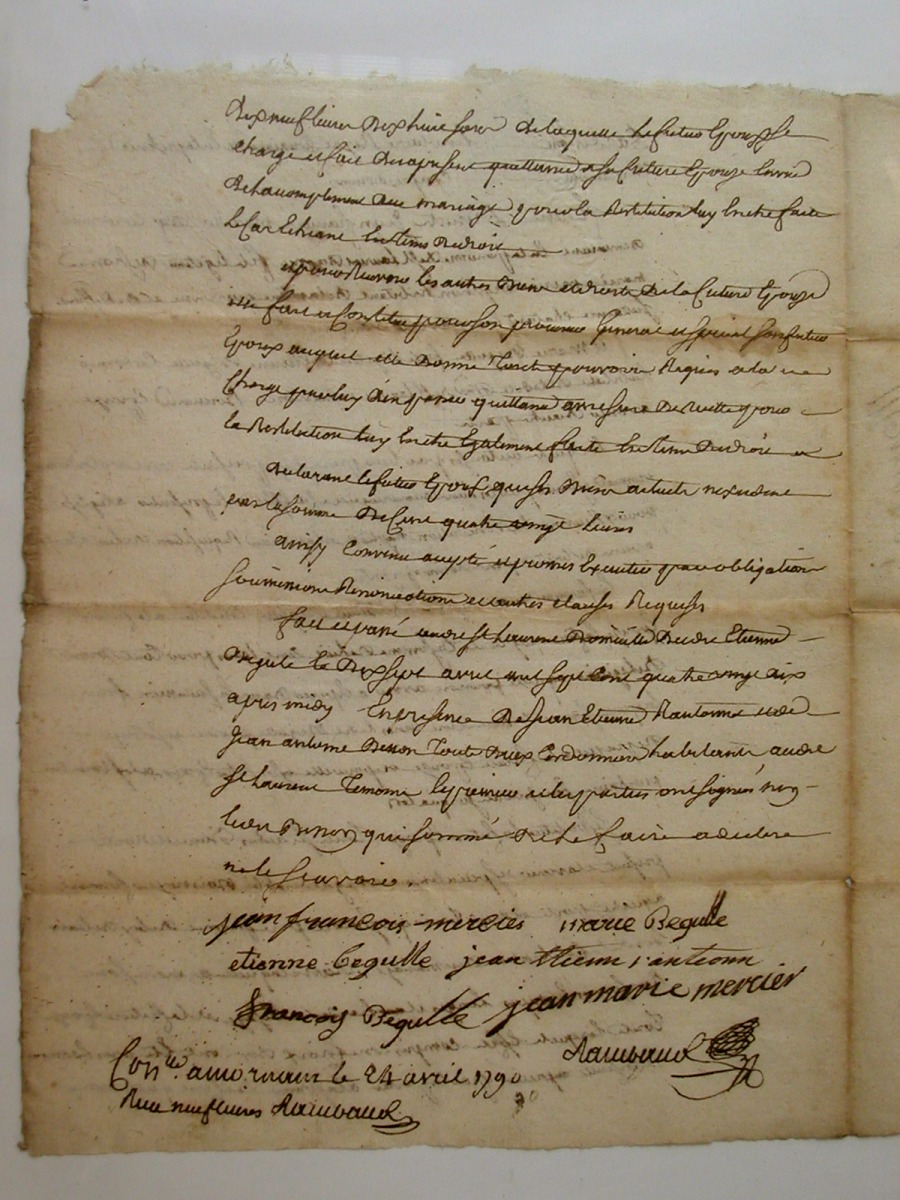 Dix neuf livres Dix huit sous de laquelle le futur Epoux se
charge et fait des apresent quittance a sa future Epouze
De laccomplement Due mariage pour la Restitution luy En etre faite
le Cas Echeant En tems De droit
et pour Recevoir les autres Biens et droits De la future Epouze
elle fait et Constitue pour son procureur General et special son futur
Epoux auquel elle Donne Tout pouvoir Requis a la
Charge par luy d'en passer quittance
la Restitution luy En etre Egalement faite En tems De droit
Declarant le futur Epoux que ses Biens actuels nexcedent
pas la somme De Cent quatre vingt livres
ainsy Convenu accepté et promis Executer par obligation
soumissions Renonciations et autres clauses Requises
fait et passé audit St Laurent Domicille Dudit Etienne
Begule le Dix sept avril mil sept Cent quatre vingt dix
apres midy En presence De Jean Etienne et de
Jean antoine Bisson Tous Deux Cordonniers habitants audit
St Laurent Temoins le premier et les parties ont signés non
ledit Bisson qui sommé De le faire a declare
ne le scavoir.
jean françois mercies marie Begulle
etienne begulle jean
françois Begulle jean marie mercier
Rambaud
Con.lé a mornant le 24 avril 1790
Rambaud